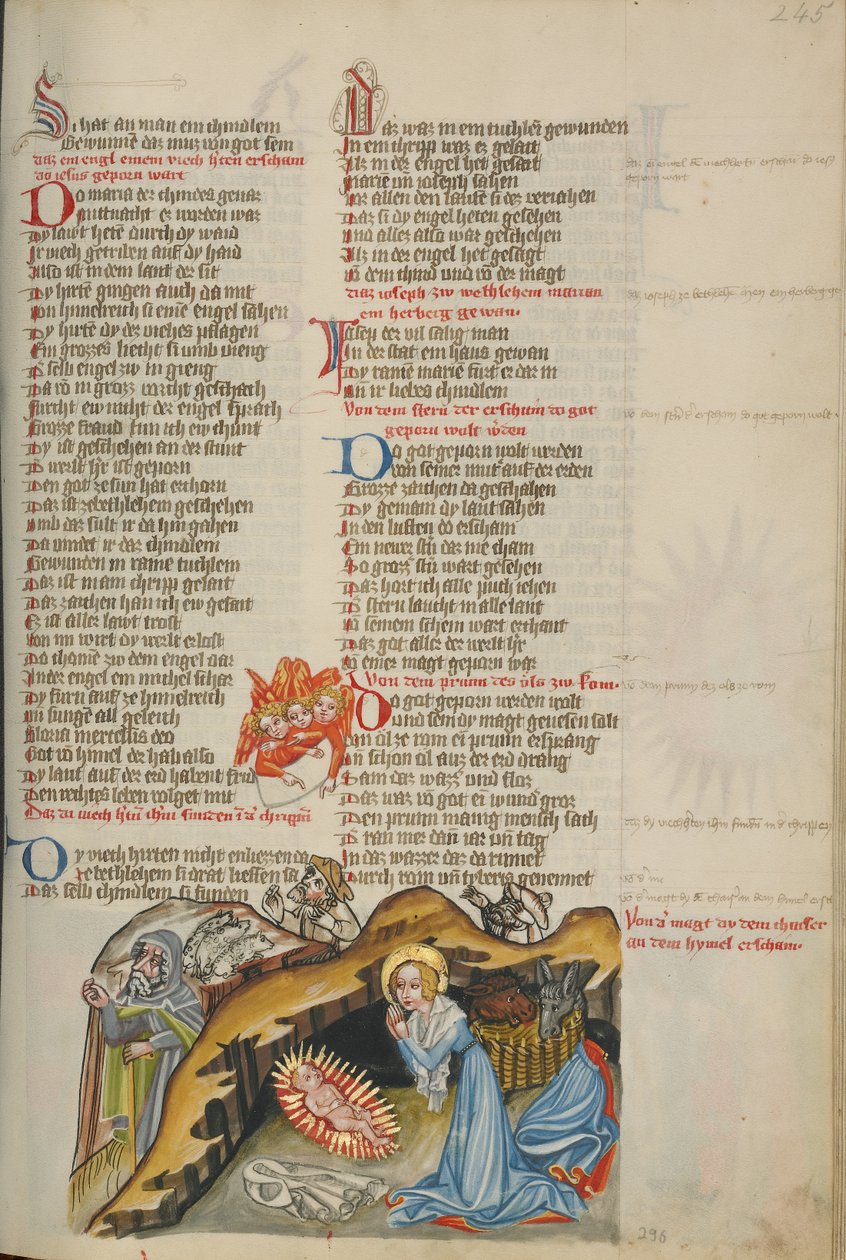 245
Si hat an man ein chindlein
Gewunne daz muz von got sein
daz ein engl einem viech hirten erscham
do iesus geporn wart
Do maria der chindes genas
Mittnacht ez worden waz
Dy lawt hete durch dy waid
Ir viech getriben auf dy haid
Also ist in dem lant der sit
Dy hirte gingen auch da mit
Von himelreich si eine engel sahen
Dy hirte dy dez viehes pflagen
Ein grozzes liecht si umb vieng
D selb engel zw in gieng
Da vo in grozz vorcht geschach
Furcht ew nicht der engel sprach
Grozze fraud tun ich ew chunt
Dy ist geschehen an der stunt
D werlt hr ist geporn
Den got ze sun hat erchorn
Daz ist zebethlehem geschehen
Umb daz sult ir da hin gahen
Da vindet ir daz chindlein
Gewunden in raine tuchlein
Daz ist in ain chripp gelait
Daz zaichen han ich ew gesait
Ez ist aller lawt trost
Von im wirt dy werlt erlost
Do chome zw dem engel dar
Ander engel ein michel schar
Dy furn auf ze himelreich
Un sunge all geleich
Gloria in excelsis deo
Got vo himel der hab also
Dy laut auf der erd habent frid
Den rechtes leben volget mit
Daz di viech hirtn ihm funden in d chrippn
Dy viech hirten nicht enliezzen da
Ze bethlehem si drat lieffen sa
Daz selb chindlein si funden
Daz waz in ein tuchlein gewunden
In ein chripp waz ez gelait
Alz in der engel het gesait
Marie un ioseph sahen
Vor allen den lauten si dez veriahen
Daz si dy engel heten gesehen
Und allez also waz geschehen
Alz in der engel het gesagt
Vo dem chind und vo der magt
daz ioseph zw bethlehem marian
ein herberg gewan
Ioseph der vil salig man
In der stat ein haus gewan
Dy raine marie furt er dar in
Un ir liebes chindlein
Von dem stern der erscham do got
geporn wolt wden
Do got geporn wolt werden
Von seiner mut auf der erden
Grozze zaichen da geschahen
Dy gemain dy laut sahen
In den luften do erscham
Ein newer stn daz nie cham
So grozz stn wart gesehen
Daz hort ich alle puch iehen
D stern laucht in alle lant
Vo seinem schein wart erchant
Daz got aller der werlt hr
Vo einer magt geporn wær
Von dem prunn des ols zw Rom
Do got geporn werden wolt
Und sein dy magt genesen solt
Von ol ze rom ein prunn ersprang
Un schon ol auz der erd drang
Sam daz wazz und floz
Daz waz vo got ein wund groz
Den prunn manig mensch sach
D ran mer dan iar un tag
In daz wazzer daz da rinnet
Durch rom un tyberis genennet
Von d magt dy dem chaiser
an dem hymel erscham
296